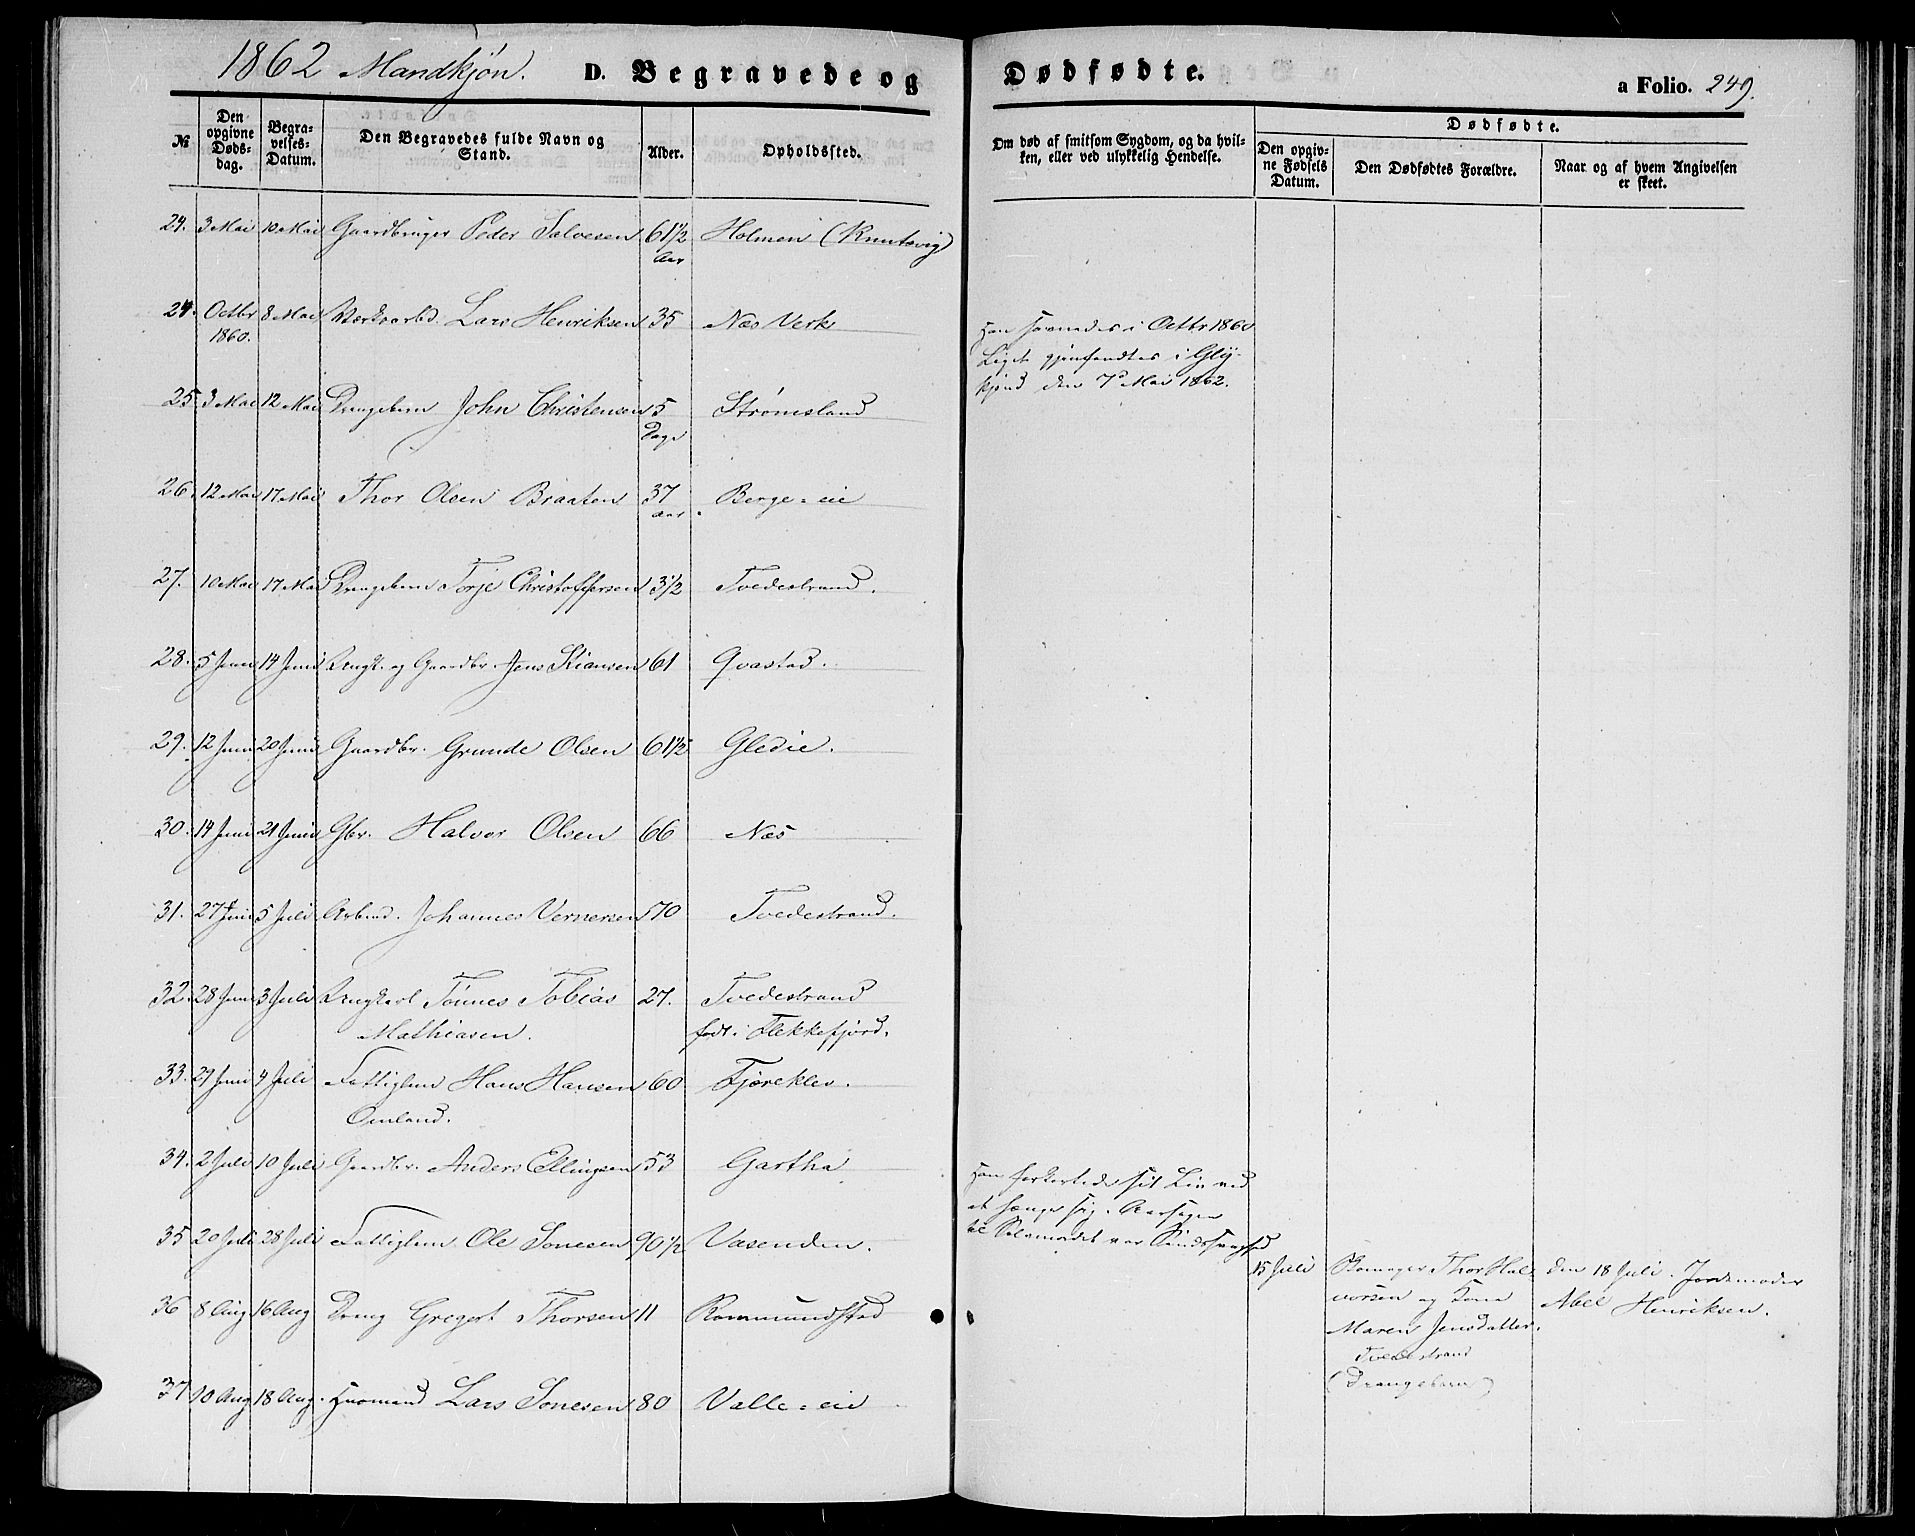 1862 Mandkjøn. D. Begravede og Dødfødte. a Folio. 249.
№ Den opgivne Døds-dag. Begra-velses-Datum. Den Begravedes fulde Navn og Stand. Alder. Opholdssted. Om død af smitsom Sygdom, og da hvil-ken, eller ved ulykkelig Hendelse. Dødfødte.
Den opgiv-ne Fødsels Datum. Den Dødfødtes Forældre. Naar og af hvem Angivelsen er skeet.
24. 3 Mai 10 Mai Gaardbruger Peder Salvesen 61 1/2 Aar Holmen (Knutsvig)
24. Octbr 1860. 8 Mai Værksarbd. Lars Henriksen 35 Næs Verk
Han savnedes i Octbr 1860
Liget gjenfandtes i Gly-
kjend den 7d Mai 1862.
25. 3 Mai 12 Mai Drengebarn John Christensen 5 Dage Strømsland
26. 12 Mai 17 Mai Thor Olsen Braaten 37 aar Berge-eie
27. 10 Mai 17 Mai Drengebarn Torje Christoffersen 3 1/2 Tvedestrand.
28. 5 Juni 14 Juni Ungk. og Gaardbr. Jens Kiansen 61 Qvastad.
29. 12 Juni 20 Juni Gaardbr. Grunde Olsen 61 1/2 Gledie.
30. 14 Juni 21 Juni Gbr. Halvor Olsen 66 Næs
31. 27 Juni 5 Juli Arbmd. Johannes Vernersen 70 Tvedestrand.
32. 28 Juni 3 Juli Ungkarl Tønnes Tobias 27. Tvedestrand
Mathiasen. født i Flekkefjord.
33. 29 Juni 4 Juli Fattiglem Hans Hansen 60 Fjæreklev.
Omland.
34. 2 Juli 10 Juli Gaardbr. Anders Ellingsen 53 Gartha
Han forkortede sit Liv ved
at hænge sig. Aarsagen
til Selvmordet var Sindssvaghed
35 20 Juli 28 Juli Fattiglem Ole Jonesen 90 1/2 Vasenden.
15 Juli Skomager Thor Hal- den 18 Juli. Jordemoder
vorsen og Kone Abel Henriksen.
Maren Jensdatter.
Tvedestrand
(Drengebarn)
36 8 Aug 16 Aug Dreng Gregert Thorsen 11 Rommundstad
37 10 Aug 18 Aug. Huusmand Lars Jonesen 80 Valle-eie